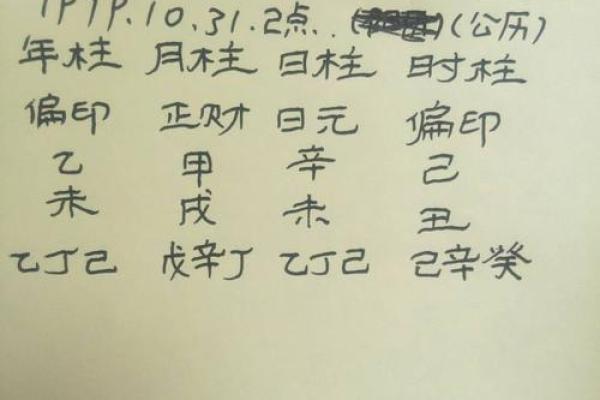 1979.10.31.2点..(公历)
年柱 月柱 日柱 时柱
偏印 正财 日元 偏印
乙 甲 辛 己
未 戌 未 丑
乙丁己 戊辛丁 乙丁己 己辛癸